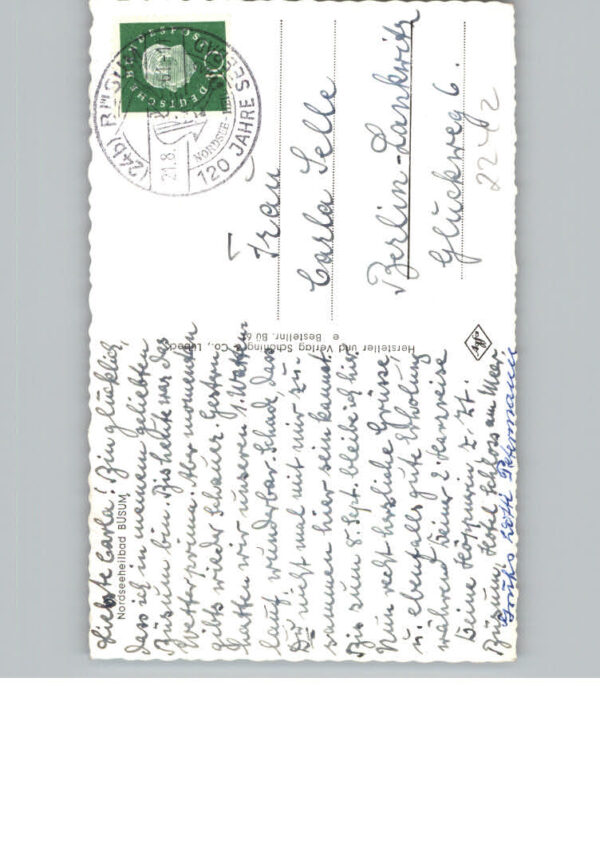 Nordseeheilbad BÜSUM
Liebste Carla! Bin glücklich,
dass ich in meinem geliebten
Büsum bin. Bis heute war das
Wetter prima. Aber momentan
gibts wieder Schauer. Gestern
hatten wir unseren 1. Watten
lauf, wunderbar. Schade, dass
Du nicht mal mit mir zu-
sammen hier sein kannst.
Bis zum 5. Sept. bleibe ich hier.
Nun recht herzliche Grüsse
u. ebenfalls gute Erholung
während Deiner 2.
Deine z. Zt.
Büsum, Hotel Schloss am Meer
Lotti Petermann
Hersteller und Verlag Schöning & Co., Lübeck
Bestellnr. Bü
DEUTSCHE BUNDESPOST
(24b) BÜSUM
21.8.
NORDSEE-
120 JAHRE SEE
Frau
Carla Selle
Berlin-Lankwitz
Glückweg 6.
2242